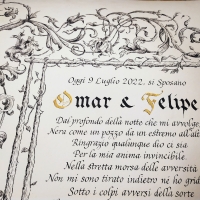 Oggi 9 Luglio 2022, si Sposano
Omar & Felipe
Dal profondo della notte che mi avvolge
Nera come un pozzo da un estremo all'alt
Ringrazio qualunque dio ci sia
Per la mia anima invincibile.
Nella stretta morsa delle avversità
Non mi sono tirato indietro né ho grid
Sotto i colpi avversi della sorte